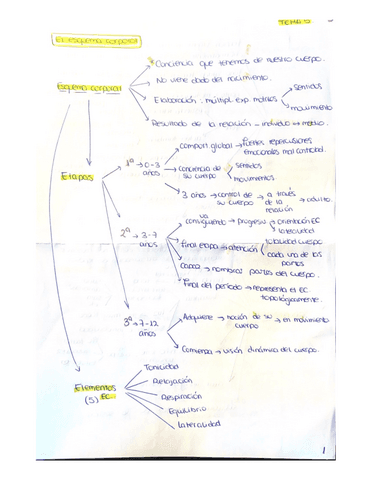 TEMA 5
El esquema corporal
Esquema corporal
Conciencia que tenemos de nuestro cuerpo.
No viene dado del nacimiento.
Elaboración: múltipl. exp. motrices
sentidos
movimiento
Resultado de la relación - individuo → medio.
Etapas
1ª → 0-3 años
comport. global → fuertes repercusiones emocionales mal controlad.
conciencia de su cuerpo
sentidos
movimientos.
3 años → control de su cuerpo → a través de la relación → adulto.
2ª → 3-7 años
va consiguiendo → progresiv.
orientación EC
lateralidad
final etapa → atención
totalidad cuerpo
cada una de las partes
capaz → nombrar partes del cuerpo.
Final del período → representa el EC topológicamente.
3ª → 7-12 años
Adquiere → noción de su cuerpo → en movimiento
Comienza → visión dinámica del cuerpo.
Elementos (5) EC
Tonicidad
Relajación
Respiración
Equilibrio
Lateralidad
1